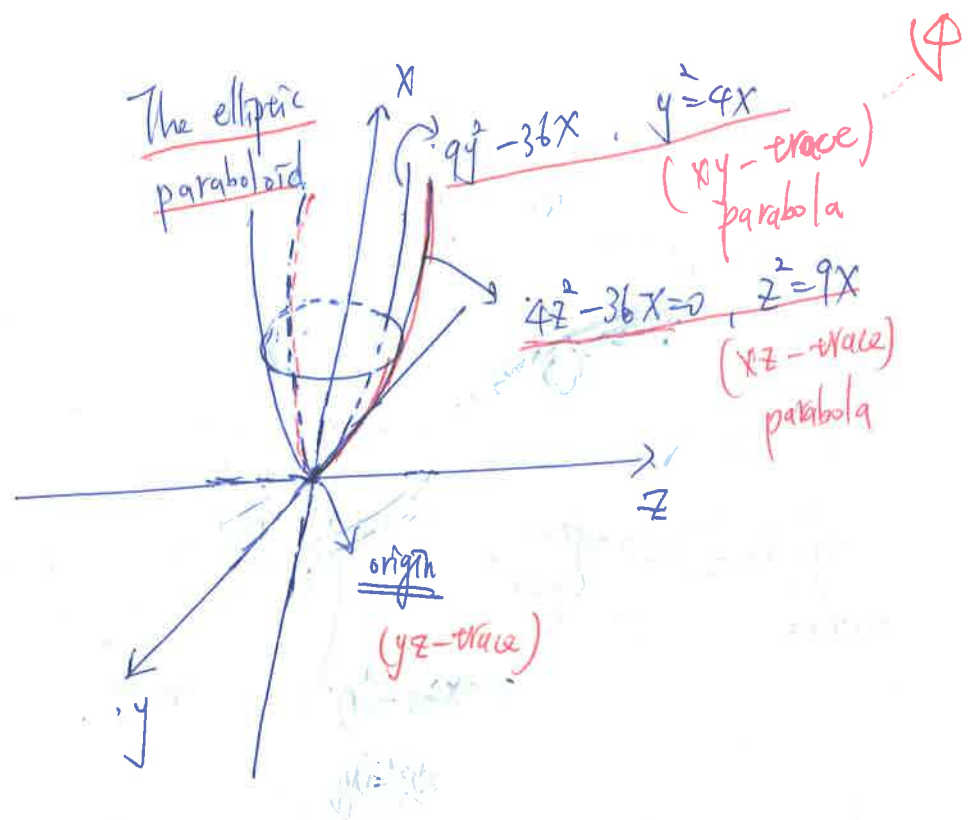 The elliptic
paraboloid
x
9y²-36x , y²=4x
(xy-trace)
parabola
4z²-36x=0 , z²=9x
(xz-trace)
parabola
z
origin
(yz-trace)
y